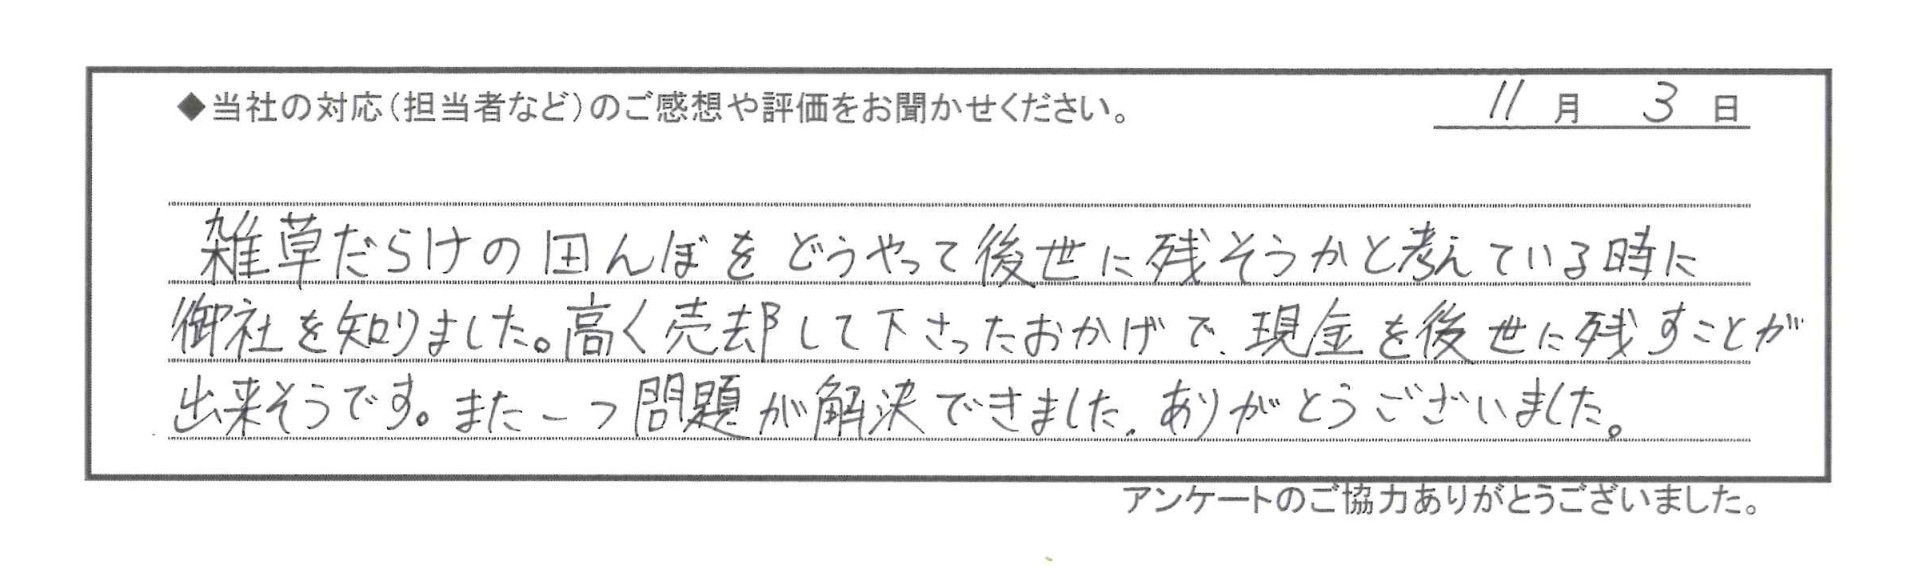 ◆当社の対応(担当者など)のご感想や評価をお聞かせください。 11月 3日
雑草だらけの田んぼをどうやって後世に残そうかと考えている時に
御社を知りました。高く売却して下さったおかげで、現金を後世に残すことが
出来そうです。また一つ問題が解決できました。ありがとうございました。
アンケートのご協力ありがとうございました。